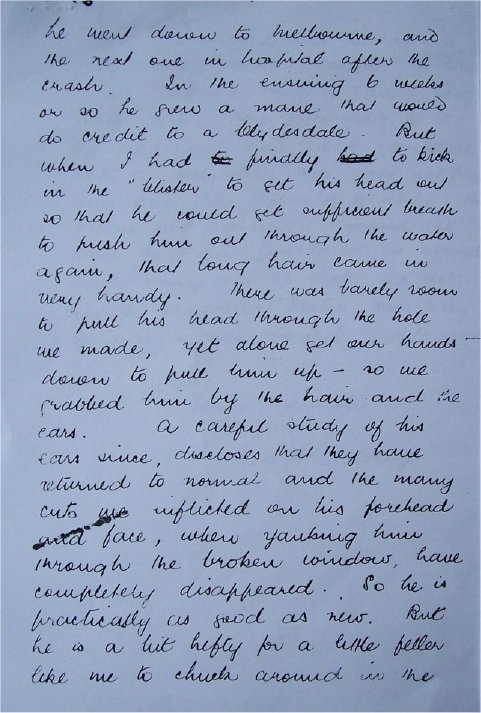 he went down to Melbourne, and
the next one in hospital after the
crash. In the ensuing 6 weeks
or so he grew a mane that would
do credit to a Clydesdale. But
when I had to finally had to kick
in the "blister" to get his head out
so that he could get sufficient breath
to push him out through the water
again, that long hair came in
very handy. There was barely room
to pull his head through the hole
we made, yet alone get our hands
down to pull him up – so we
grabbed him by the hair and the
ears. A careful study of his
ears since, discloses that they have
returned to normal and the many
cuts we inflicted on his forehead
and face, when yanking him
through the broken window, have
completely disappeared. So he is
practically as good as new. But
he is a bit hefty for a little feller
like me to chuck around in the